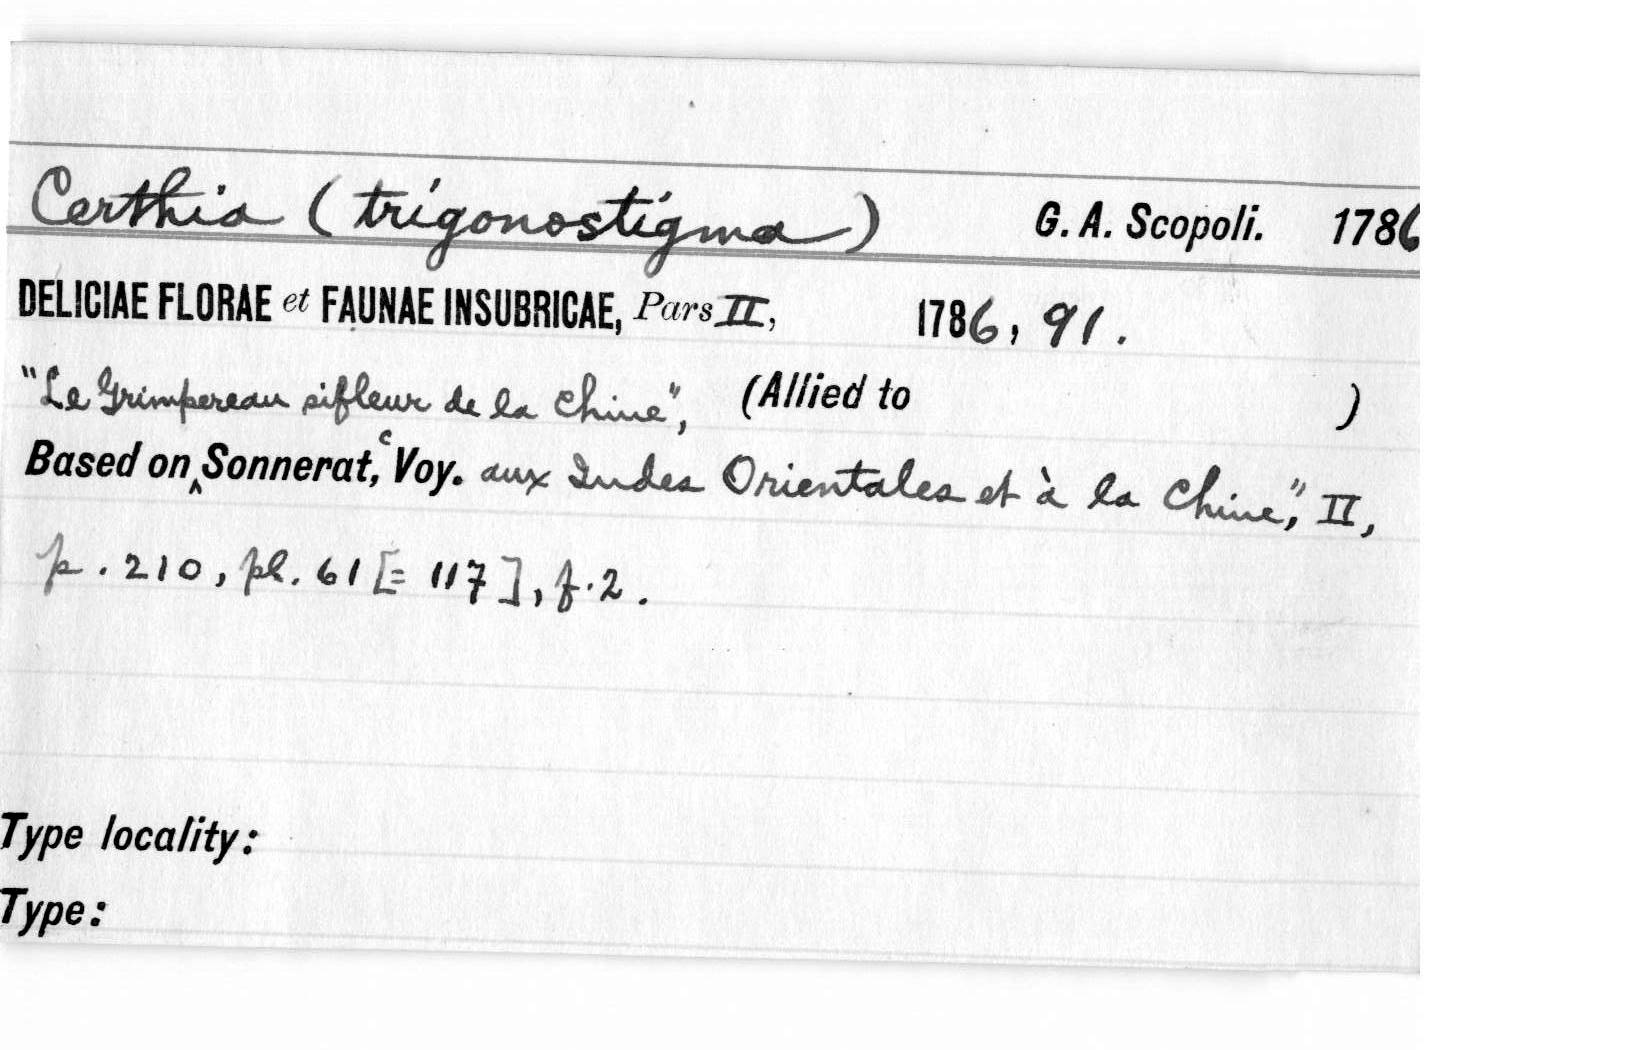 Certhia (trigonostigma) G. A. Scopoli. 1786
DELICIAE FLORAE et FAUNAE INSUBRICAE, Pars II, 1786, 91.
"Le Grimpereau sifleur de la Chine", (Allied to )
Based on ‸ Sonnerat, "Voy. aux Indes Orientales et à la Chine", II,
p. 210, pl. 61 [= 117], f. 2.
Type locality:
Type: